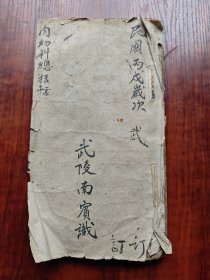 民國丙戌歲次 訂
武陵南賓識
內幼科總括